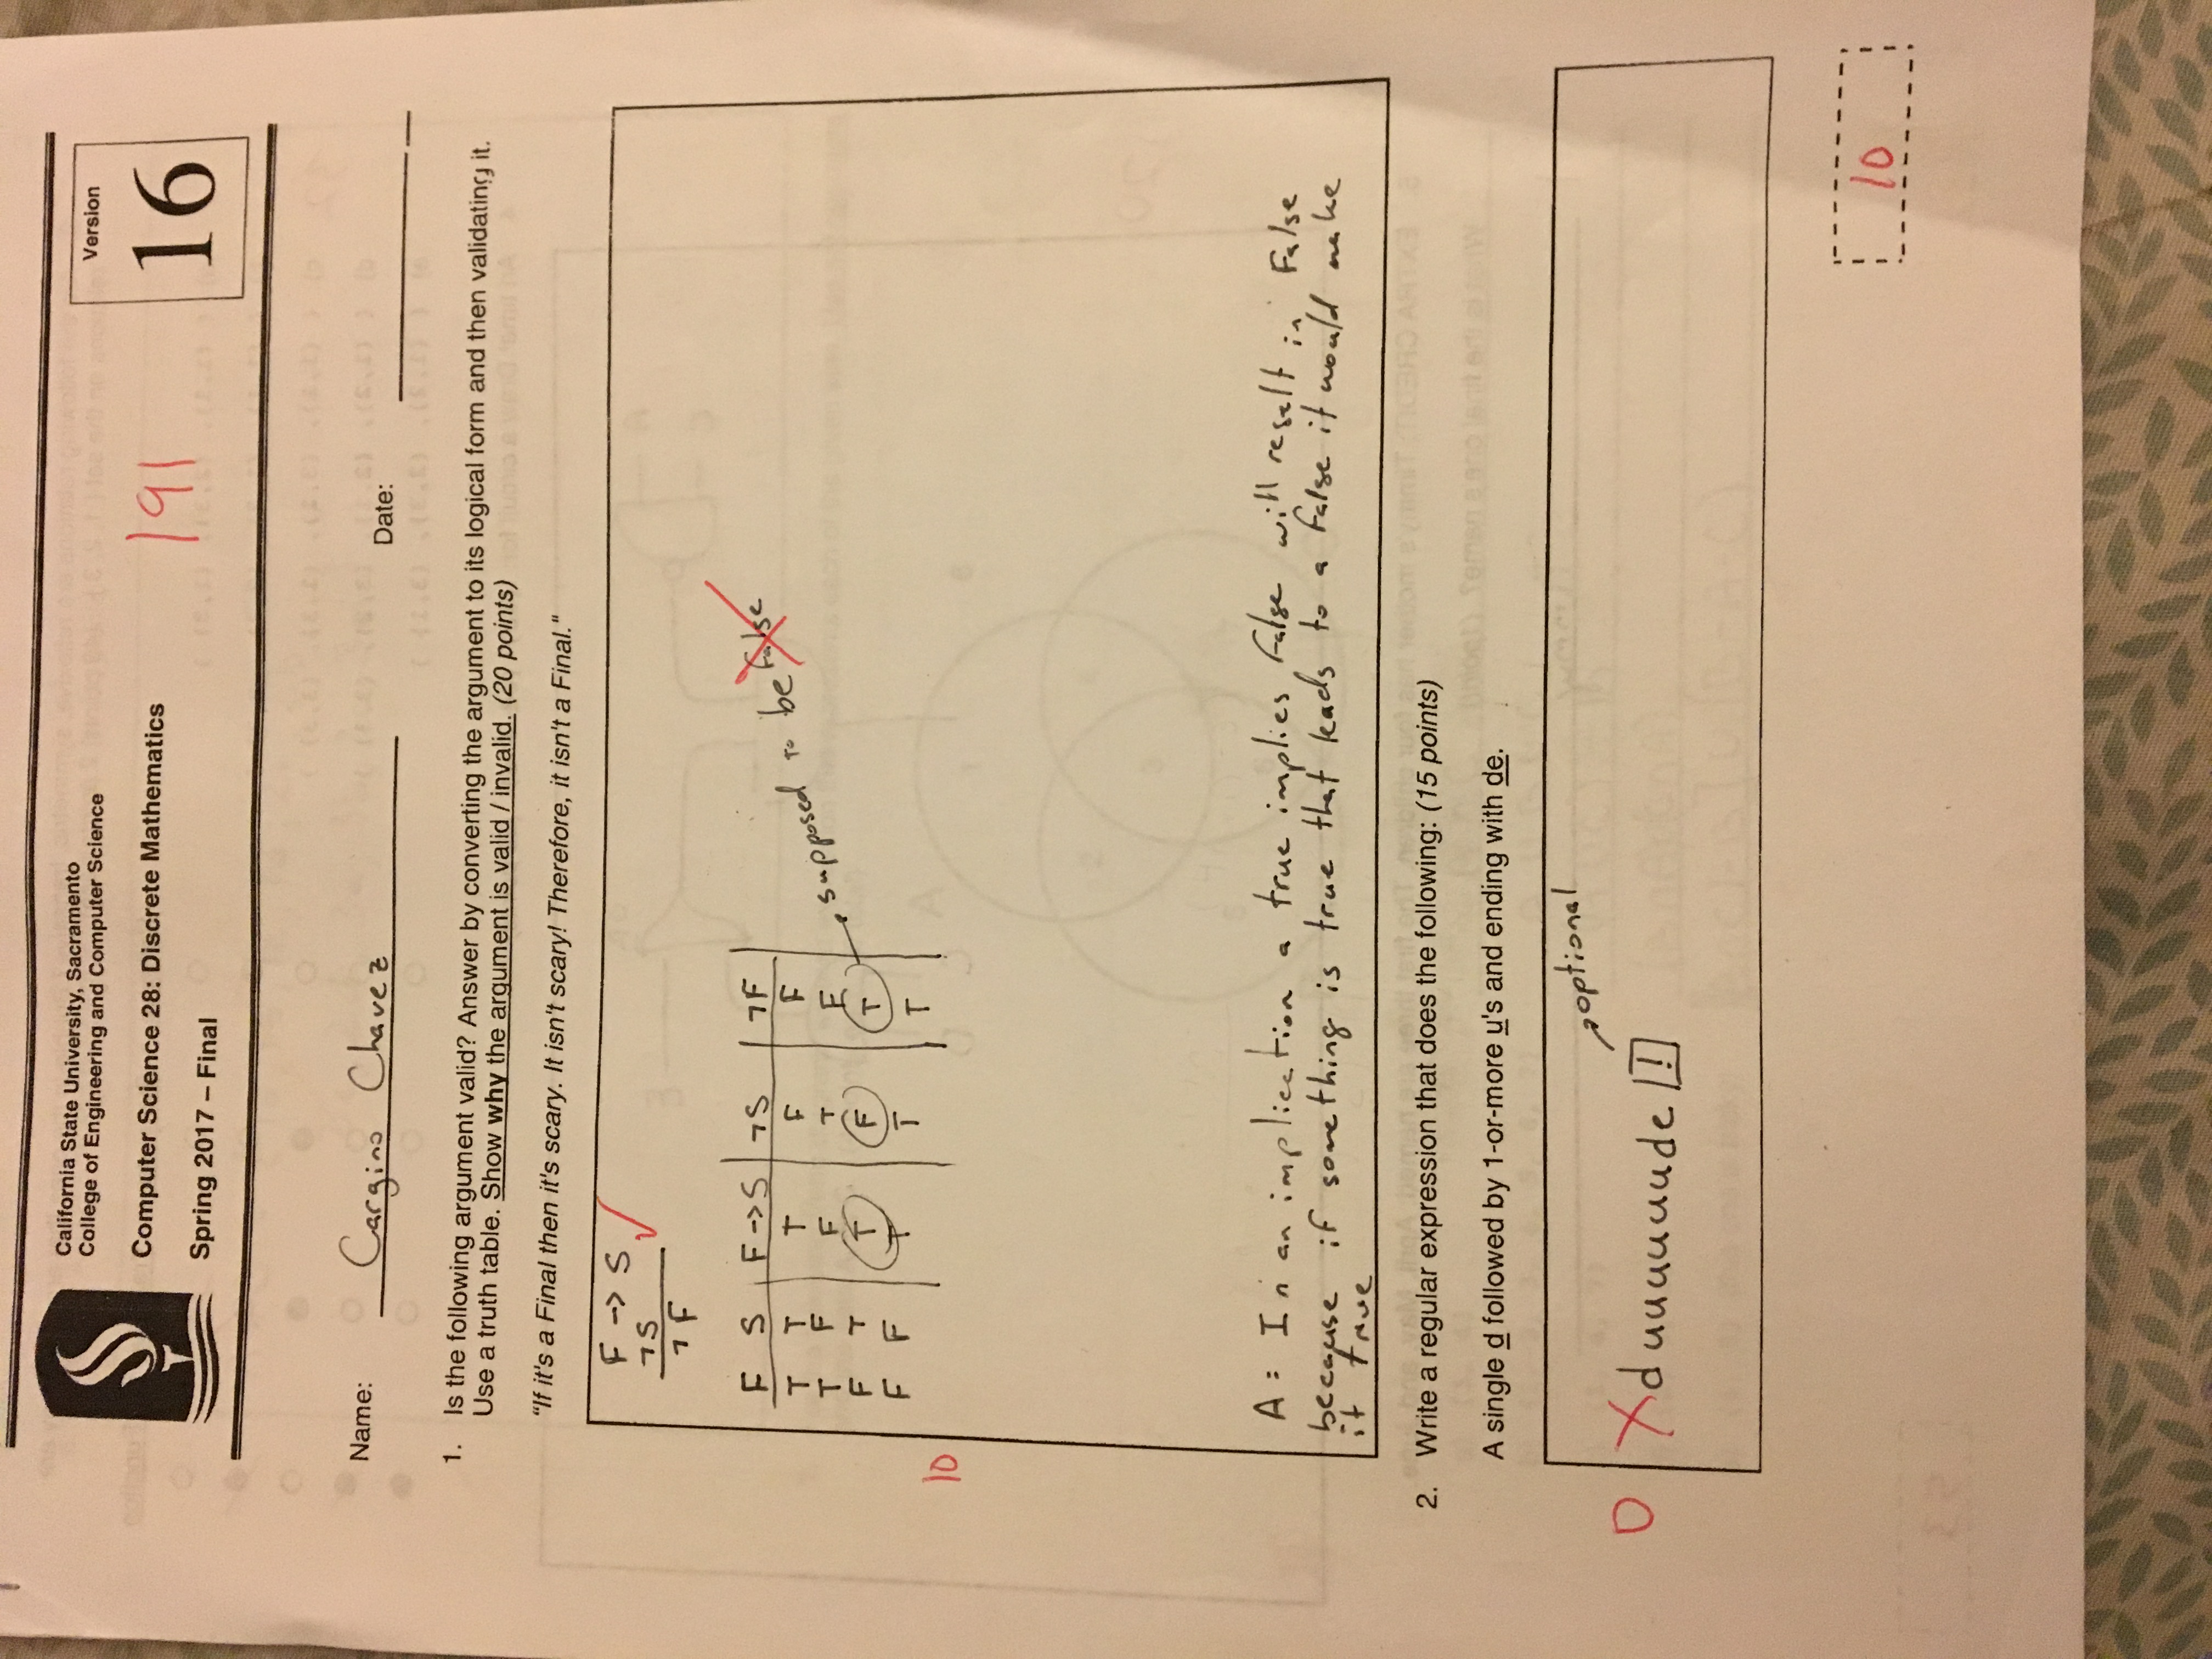 California State University, Sacramento
College of Engineering and Computer Science
Computer Science 28: Discrete Mathematics
Spring 2017 – Final
191
Version
16
Name: Cargino Chavez
Date:
1. Is the following argument valid? Answer by converting the argument to its logical form and then validating it.
Use a truth table. Show why the argument is valid / invalid. (20 points)
"If it's a Final then it's scary. It isn't scary! Therefore, it isn't a Final."
F -> S
¬S
¬F
F S F->S ¬S ¬F
T T T F F
T F F T F
F T T F T
F F T T T
supposed to be false
10
A: In an implication a true implies false will result in False
because if something is true that leads to a false it would make
it true
2. Write a regular expression that does the following: (15 points)
A single d followed by 1-or-more u's and ending with de.
optional
0
duuuuuuude [!]
10